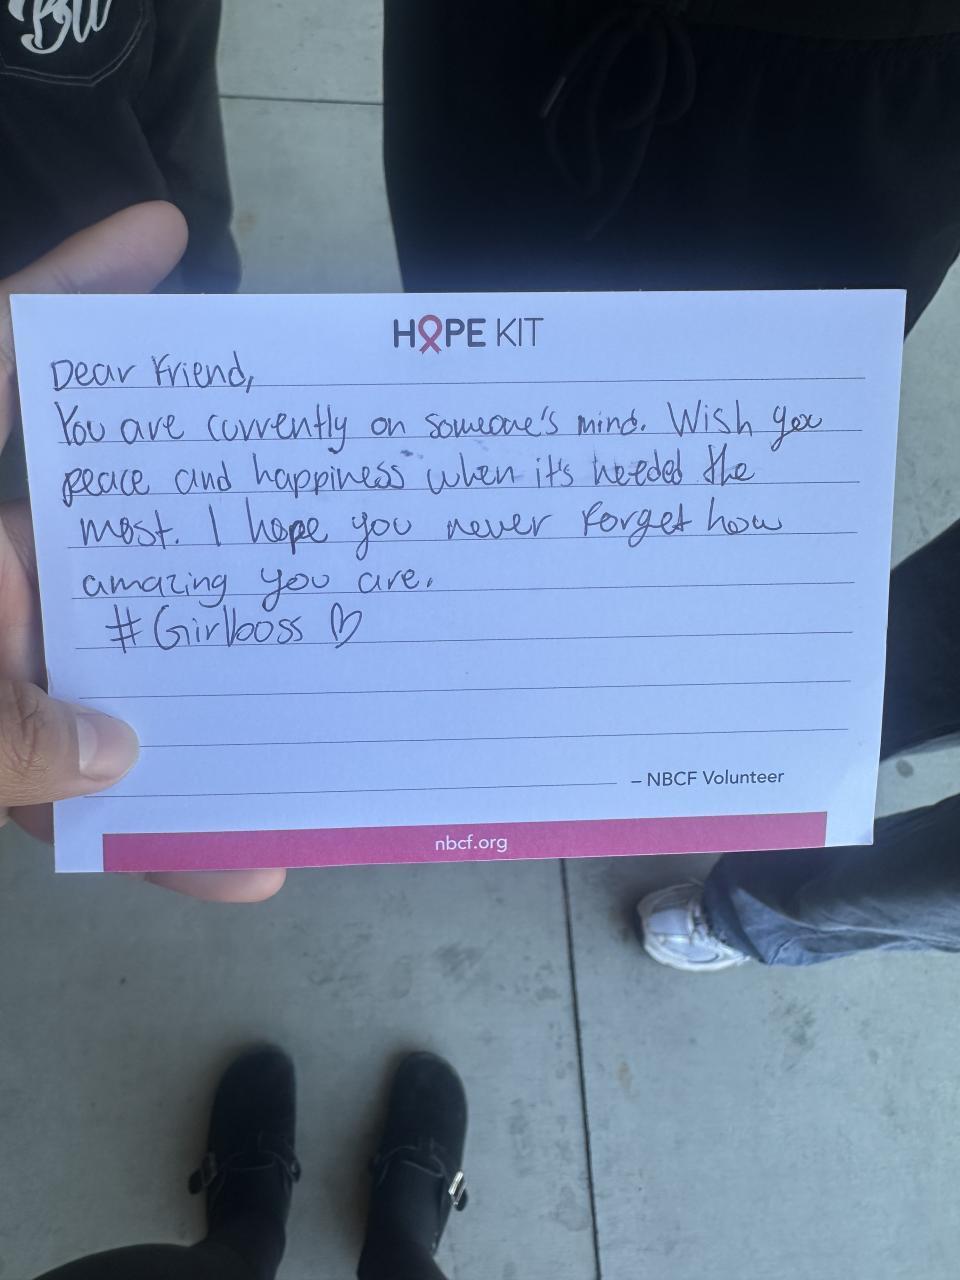 BW
HOPE KIT
Dear Friend,
You are currently on someone's mind. Wish you
peace and happiness when it's needed the
most. I hope you never forget how
amazing you are.
#Girlboss ♡
– NBCF Volunteer
nbcf.org